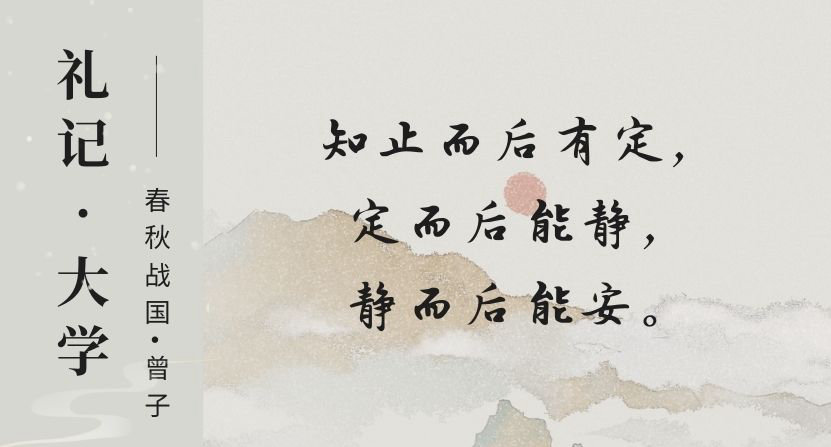 礼记·大学
——春秋战国·曾子
知止而后有定，
定而后能静，
静而后能安。